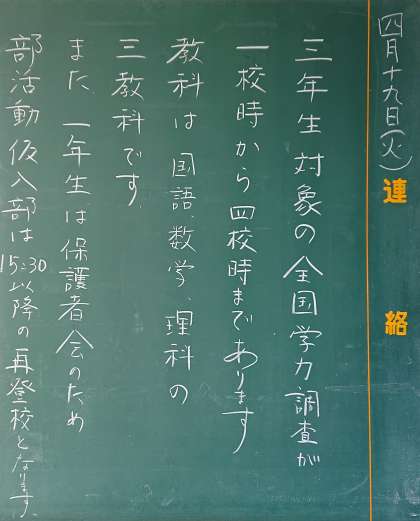 四月十九日(火)
連絡
三年生対象の全国学力調査が
一校時から四校時まであります
教科は国語、数学、理科の
三教科です。
また、一年生は保護者会のため
部活動仮入部は15:30以降の再登校となります。